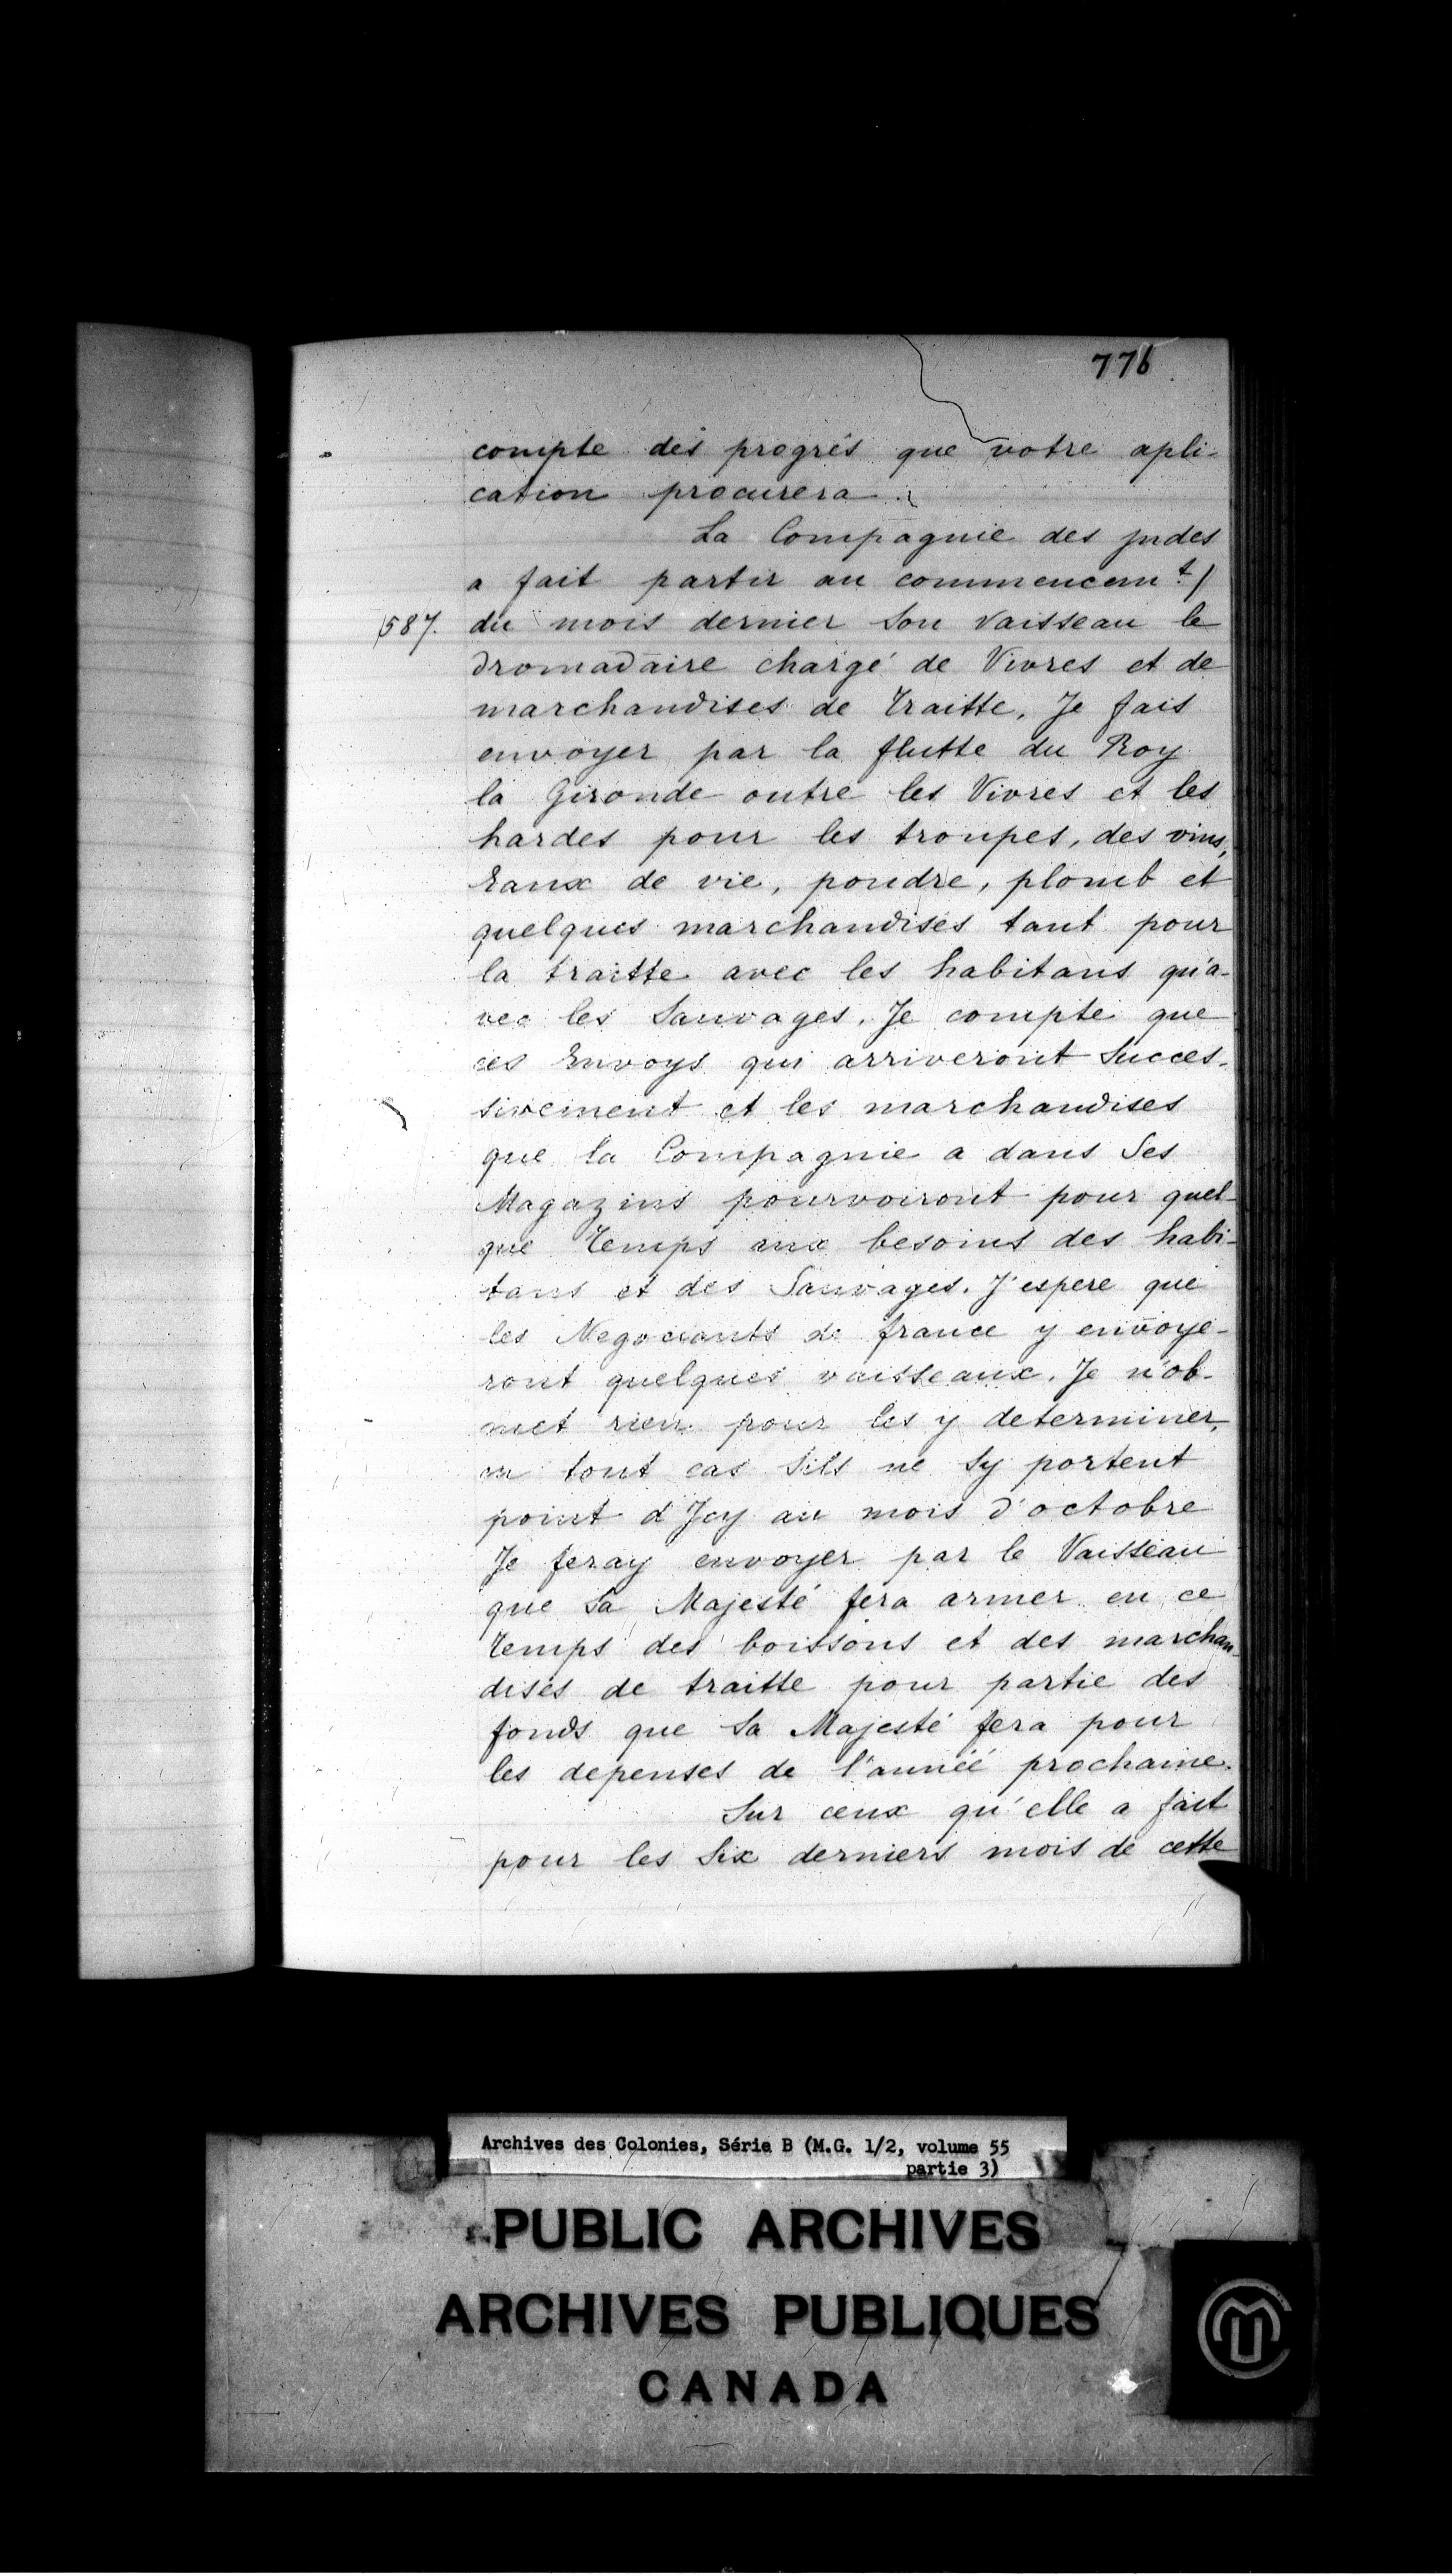 776
compte des progrés que votre apli-
cation procurera.
La Compagnie des jndes
a fait partir au commencemt /
587. du mois dernier son vaisseau le
dromadaire chargé de Vivres et de
marchandises de traitte. Je fais
envoyer par la flutte du Roy
la Gironde outre les Vivres et les
hardes pour les troupes, des vins,
Eaux de vie, poudre, plomb et
quelques marchandises tant pour
la traitte avec les habitans qu'a-
vec les Sauvages. Je compte que
ces Envoys qui arriveront succes-
sivement et les marchandises
que la Compagnie a dans ses
Magazins pourvoiront pour quel-
que temps aux besoins des habi-
tans et des Sauvages. J'espere que
les Negociants de france y envoye-
ront quelques vaisseaux. Je n'ob-
met rien pour les y determiner,
en tout cas s'ils ne sy portent
point d'Jcy au mois d'octobre
Je feray envoyer par le Vaisseau
que sa Majesté fera armer en ce
temps des boissons et des marchan-
dises de traitte pour partie des
fonds que sa Majesté fera pour
les depenses de l'année prochaine.
Sur ceux qu'elle a fait
pour les six derniers mois de cette
Archives des Colonies, Série B (M.G. 1/2, volume 55
partie 3)
PUBLIC ARCHIVES
ARCHIVES PUBLIQUES
CANADA